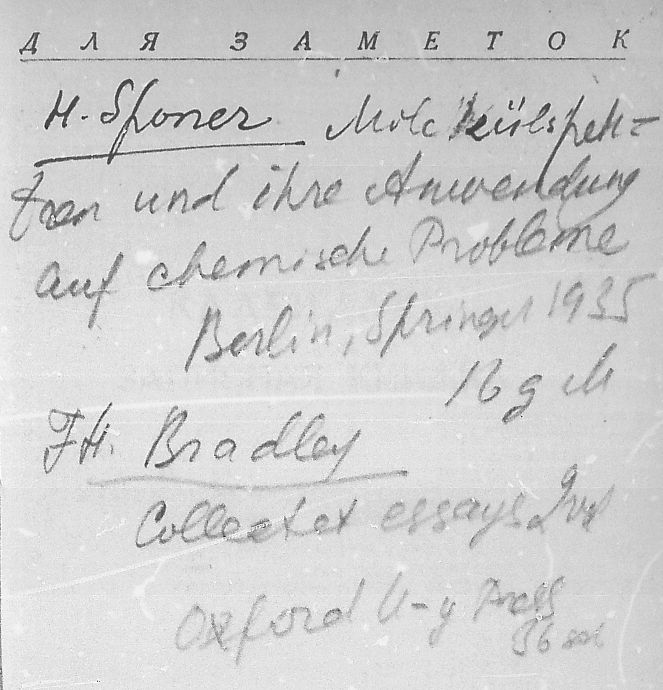 ДЛЯ ЗАМЕТОК
H. Sponer Molekülspek-
tren und ihre Anwendung
auf chemische Probleme
Berlin, Springer 1935
16 g M
F.H. Bradley
Collectet essays 2 vol
Oxford U-y Press
36